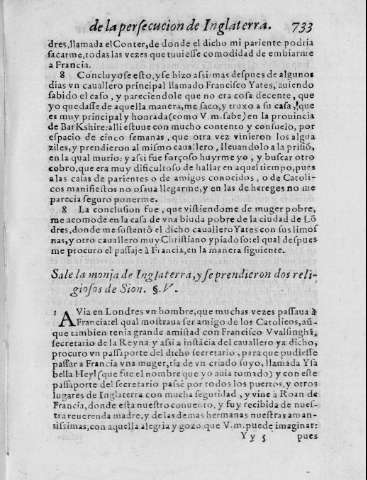 de la persecucion de Inglaterra. 733
dres, llamada el Conter, de donde el dicho mi pariente podria
sacarme, todas las vezes que tuuiesse comodidad de embiarme
a Francia.
8 Concluyose esto, y se hizo assi: mas despues de algunos
dias vn cauallero principal llamado Francisco Yates, auiendo
sabido el caso, y pareciendole que no era cosa decente, que
yo quedasse de aquella manera, me saco, y truxo a su casa, que
es muy principal y honrada (como V.m. sabe) en la prouincia
de BarKshire: alli estuue con mucho contento y consuelo, por
espacio de cinco semanas, que otra vez vinieron los algua
ziles, y prendieron al mismo cauallero, lleuandolo a la prisió,
en la qual murio: y assi fue forçoso huyrme yo, y buscar otro
cobro, que era muy dificultoso de hallar en aquel tiempo, pues
a las casas de parientes o de amigos conocidos, o de Catoli-
cos manifiestos no osaua llegarme, y en las de hereges no me
parecia seguro ponerme.
8 La conclusion fue, que vistiendome de muger pobre,
me acomodè en la casa de vna biuda pobre de la ciudad de Lõ
dres, donde me sustentò el dicho cauallero Yates con sus limos
nas, y otro cauallero muy Christiano y piadoso: el qual despues
me procuro el passaje à Francia, en la manera siguiente.
Sale la monja de Inglaterra, y se prendieron dos reli-
giosos de Sion. §. V.
1 AVia en Londres vn hombre, que muchas vezes passaua à
Francia: el qual mostraua ser amigo de los Catolicos, aũ-
que tambien tenia grande amistad con Francisco Vvalsinghã,
secretario de la Reyna: y assi a instãcia del cauallero ya dicho,
procuro vn passaporte del dicho secretario, para que pudiesse
passar a Francia vna muger, tia de vn criado suyo, llamada Ysa
bella Heyl (que fue el nombre que yo auia tomado) y con este
passaporte del secretario passè por todos los puertos, y otros
lugares de Inglaterra con mucha seguridad, y vine à Roan de
Francia, donde esta nuestro conuento, y fuy recibida de nues-
tra reuerenda madre, y de las demas hermanas nuestras aman-
tissimas, con aquella alegria y gozo que V.m. puede imaginar:
Yy 5 pues